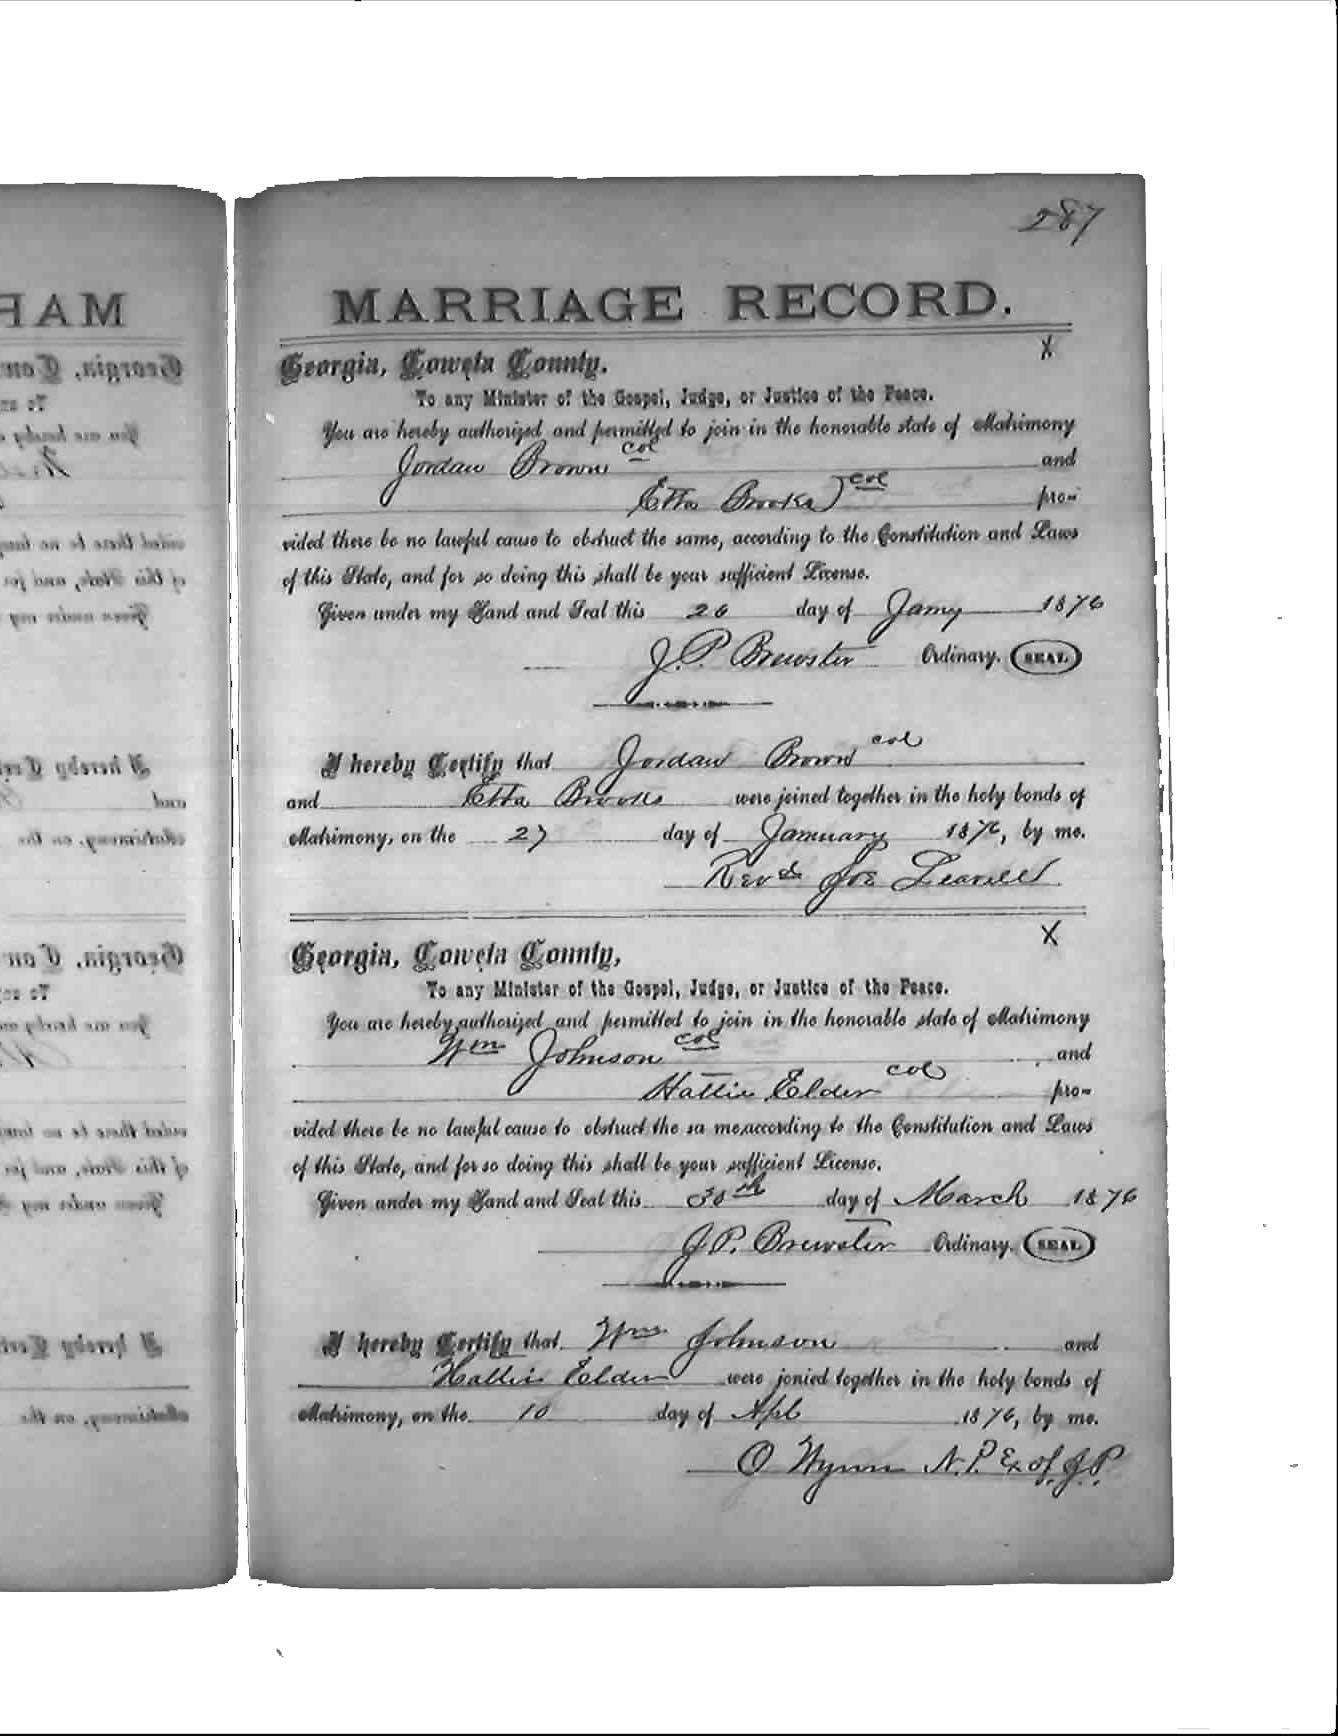 287
MARRIAGE RECORD.
X
Georgia, Coweta County.
To any Minister of the Gospel, Judge, or Justice of the Peace.
You are hereby authorized and permitted to join in the honorable state of Matrimony
Jordan Brown col and
Etta Brooks) col pro-
vided there be no lawful cause to obstruct the same, according to the Constitution and Laws
of this State, and for so doing this shall be your sufficient License.
Given under my Hand and Seal this 26 day of Jany 1876
J. P. Brewster Ordinary. SEAL
I hereby Certify that Jordan Brown col
and Etta Brooks were joined together in the holy bonds of
Matrimony, on the 27 day of January 1876, by me.
Revd Joe Leavell
X
Georgia, Coweta County,
To any Minister of the Gospel, Judge, or Justice of the Peace.
You are hereby authorized and permitted to join in the honorable state of Matrimony
Wm Johnson col and
Hattie Elder col pro-
vided there be no lawful cause to obstruct the sa me,according to the Constitution and Laws
of this State, and for so doing this shall be your sufficient License.
Given under my Hand and Seal this 30th day of March 1876
J. P. Brewster Ordinary. SEAL
I hereby Certify that Wm Johnson and
Hattie Elder were jonied together in the holy bonds of
Matrimony, on the 10 day of Apl 1876, by me.
O Wynn N. P. Ex of. J. P.